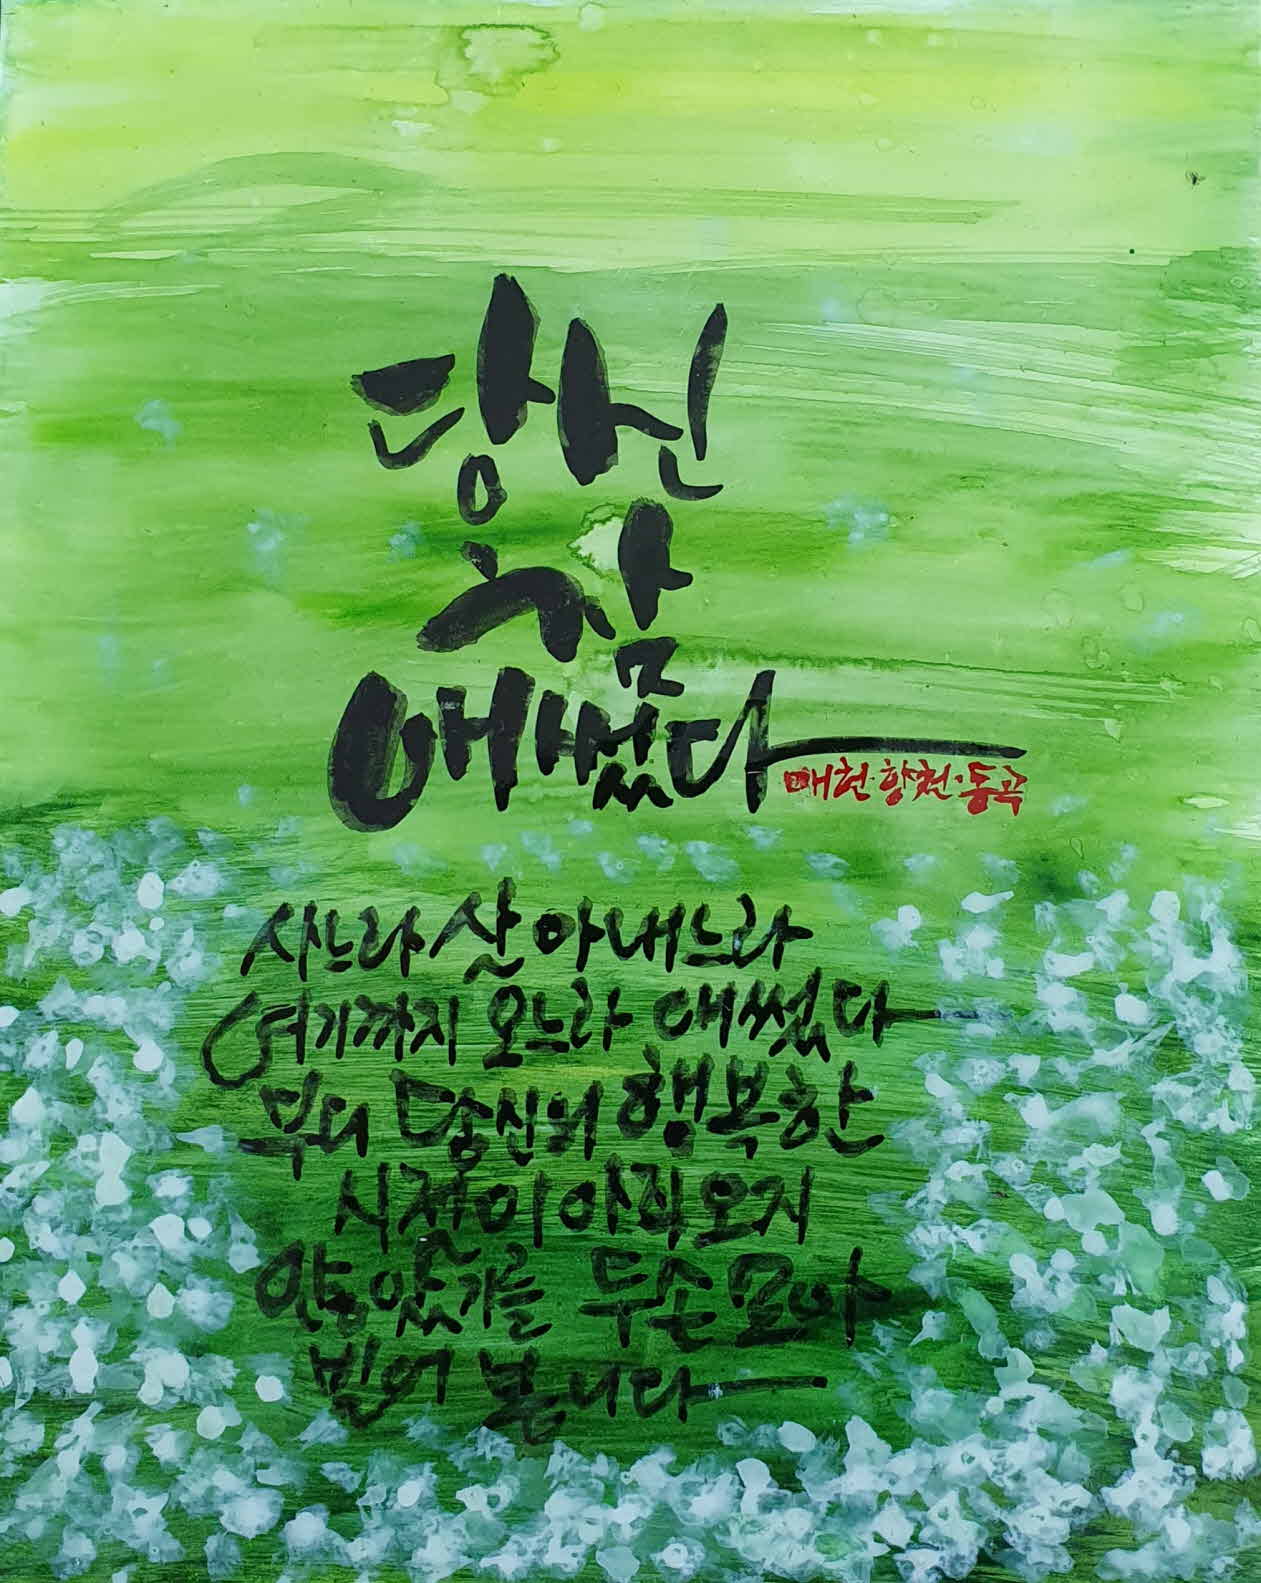 당신
참
애썼다
매헌·향천·동곡
사느라 살아내느라
여기까지 오느라 애썼다
부디 당신의 행복한
시절이 아직 오지
않았기를 두손 모아
빌어 봅니다